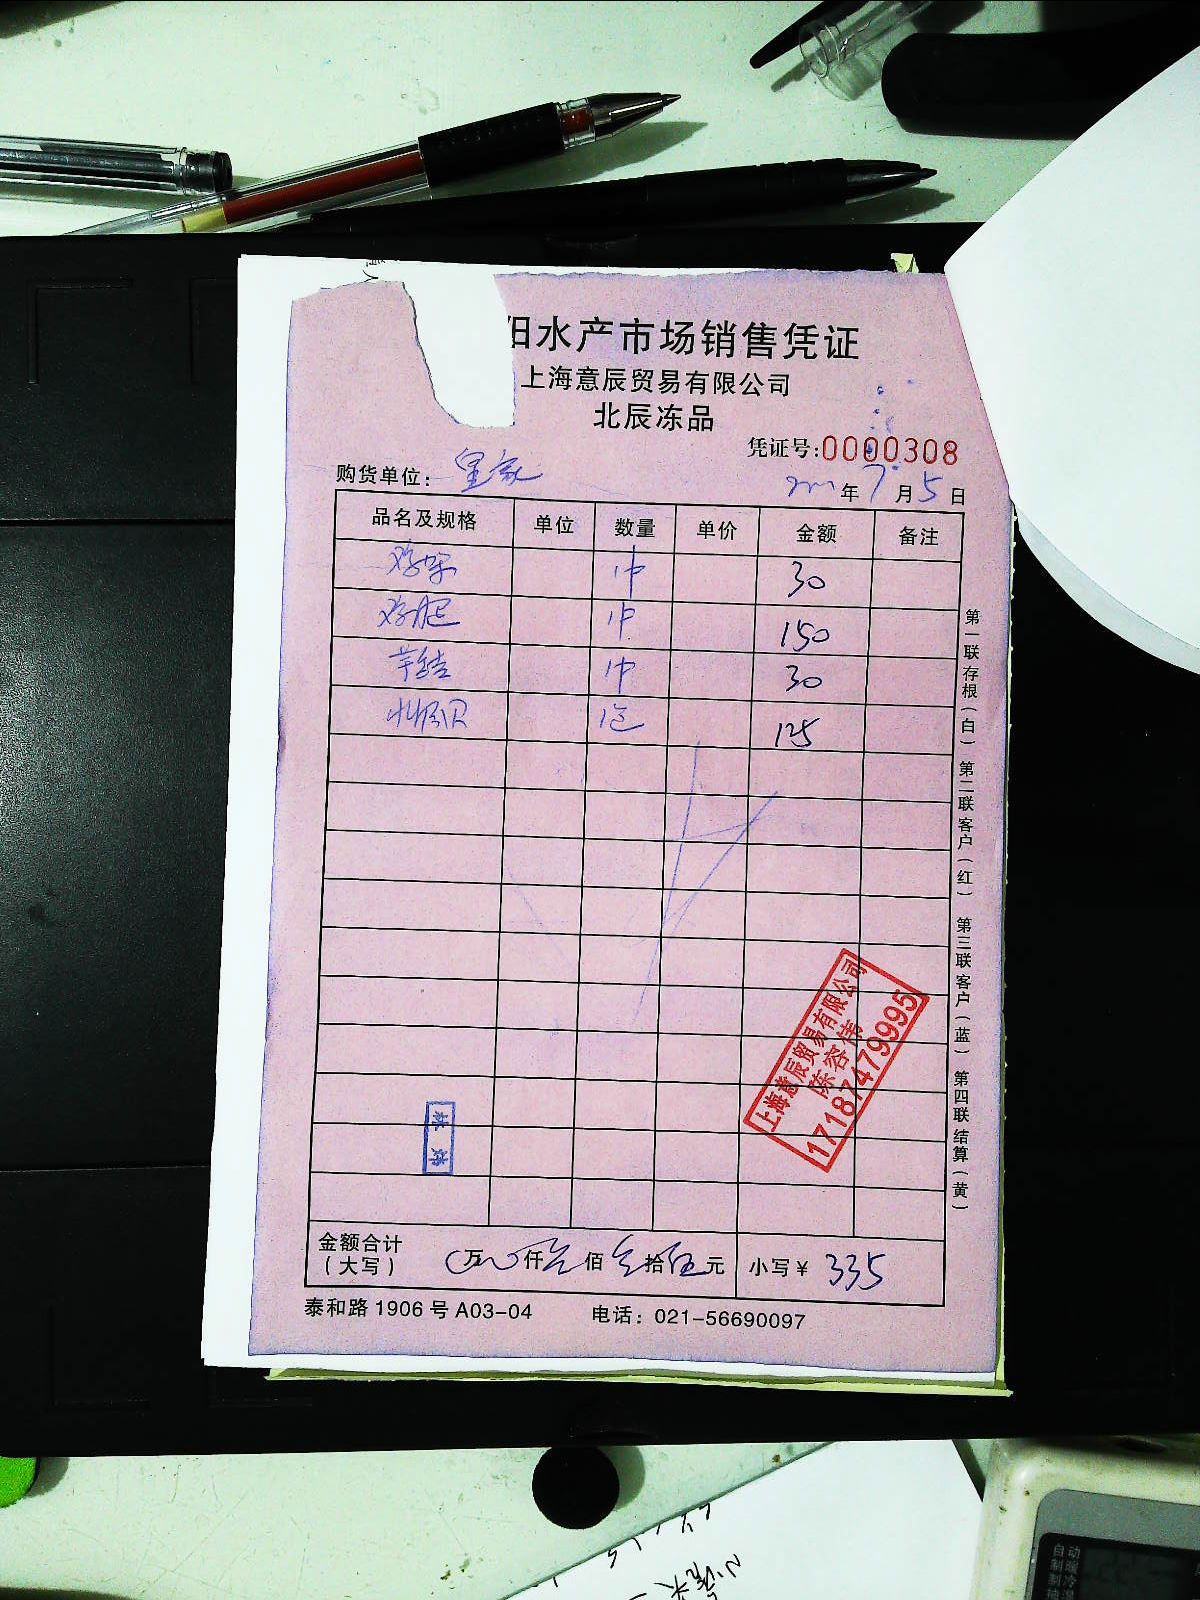 阳水产市场销售凭证
上海意辰贸易有限公司
北辰冻品
凭证号:0000308
购货单位: 皇家
年 7 月 5 日
品名及规格 单位 数量 单价 金额 备注
1件 30
1件 150
芋结 1件 30
1包 125
第一联存根(白) 第二联客户(红) 第三联客户(蓝) 第四联结算(黄)
上海意辰贸易有限公司
陈容伟
17187479995
金额合计(大写) 0万0仟叁佰叁拾伍元 小写¥ 335
泰和路1906号A03-04 电话: 021-56690097
自动
制暖
制冷